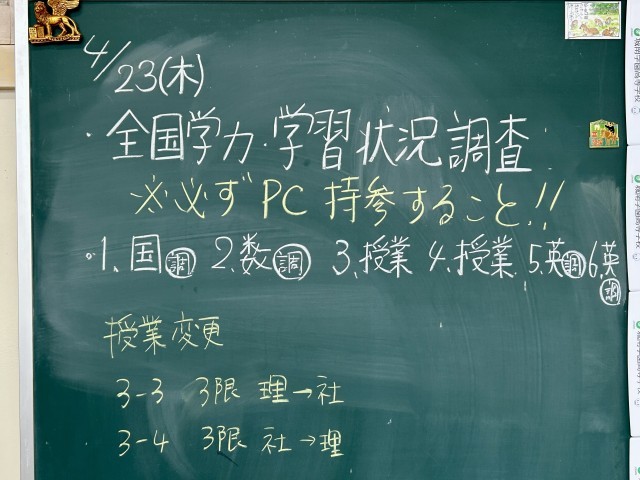 4/23(木)
・全国学力・学習状況調査
※必ずPC持参すること!!
・1、国調 2、数調 3、授業 4、授業 5、英調 6、英調
授業変更
3-3 3限 理→社
3-4 3限 社→理